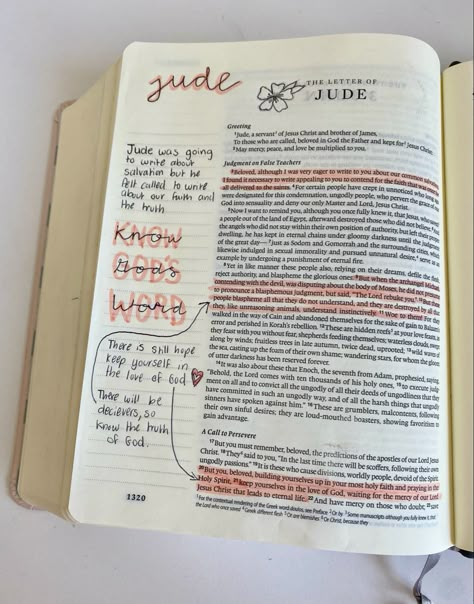 jude
THE LETTER OF
JUDE
Jude was going
to write about
salvation but he
felt called to write
about our faith and
the truth
KNOW
Know
GOD'S
God's
WORD
Word
There is still hope
keep yourself in
the love of God
There will be
decievers, so
know the truth
of God.
1320
Greeting
1 Jude, a servant1 of Jesus Christ and brother of James,
To those who are called, beloved in God the Father and kept for2 Jesus Christ:
2 May mercy, peace, and love be multiplied to you.
Judgment on False Teachers
3 Beloved, although I was very eager to write to you about our common salvation,
I found it necessary to write appealing to you to contend for the faith that was once for
all delivered to the saints. 4 For certain people have crept in unnoticed who long ago
were designated for this condemnation, ungodly people, who pervert the grace of our
God into sensuality and deny our only Master and Lord, Jesus Christ.
5 Now I want to remind you, although you once fully knew it, that Jesus, who saved
a people out of the land of Egypt, afterward destroyed those who did not believe. 6 And
the angels who did not stay within their own position of authority, but left their proper
dwelling, he has kept in eternal chains under gloomy darkness until the judgment
of the great day— 7 just as Sodom and Gomorrah and the surrounding cities, which
likewise indulged in sexual immorality and pursued unnatural desire,4 serve as an
example by undergoing a punishment of eternal fire.
8 Yet in like manner these people also, relying on their dreams, defile the flesh,
reject authority, and blaspheme the glorious ones. 9 But when the archangel Michael,
contending with the devil, was disputing about the body of Moses, he did not presume
to pronounce a blasphemous judgment, but said, "The Lord rebuke you." 10 But these
people blaspheme all that they do not understand, and they are destroyed by all that
they, like unreasoning animals, understand instinctively. 11 Woe to them! For they
walked in the way of Cain and abandoned themselves for the sake of gain to Balaam's
error and perished in Korah's rebellion. 12 These are hidden reefs5 at your love feasts, as
they feast with you without fear, shepherds feeding themselves; waterless clouds, swept
along by winds; fruitless trees in late autumn, twice dead, uprooted; 13 wild waves of
the sea, casting up the foam of their own shame; wandering stars, for whom the gloom
of utter darkness has been reserved forever.
14 It was also about these that Enoch, the seventh from Adam, prophesied, saying,
"Behold, the Lord comes with ten thousands of his holy ones, 15 to execute judg-
ment on all and to convict all the ungodly of all their deeds of ungodliness that they
have committed in such an ungodly way, and of all the harsh things that ungodly
sinners have spoken against him." 16 These are grumblers, malcontents, following
their own sinful desires; they are loud-mouthed boasters, showing favoritism to
gain advantage.
A Call to Persevere
17 But you must remember, beloved, the predictions of the apostles of our Lord Jesus
Christ. 18 They6 said to you, "In the last time there will be scoffers, following their own
ungodly passions." 19 It is these who cause divisions, worldly people, devoid of the Spirit.
20 But you, beloved, building yourselves up in your most holy faith and praying in the
Holy Spirit, 21 keep yourselves in the love of God, waiting for the mercy of our Lord
Jesus Christ that leads to eternal life. 22 And have mercy on those who doubt; 23 save
1 For the contextual rendering of the Greek word doulos, see Preface 2 Or by 3 Some manuscripts although you fully knew it, that
the Lord who once saved 4 Greek different flesh 5 Or are blemishes 6 Or Christ, because they